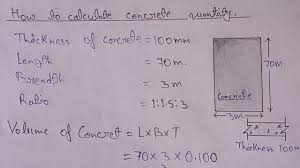 How to calculate concrete quantity.
Thickness of concrete = 100mm
Length = 70m.
Breadth = 3m
Ratio = 1:1.5:3
70m
Concrete
3m
Thickness 100m
Volume of Concret = L×B×T
= 70×3×0.100